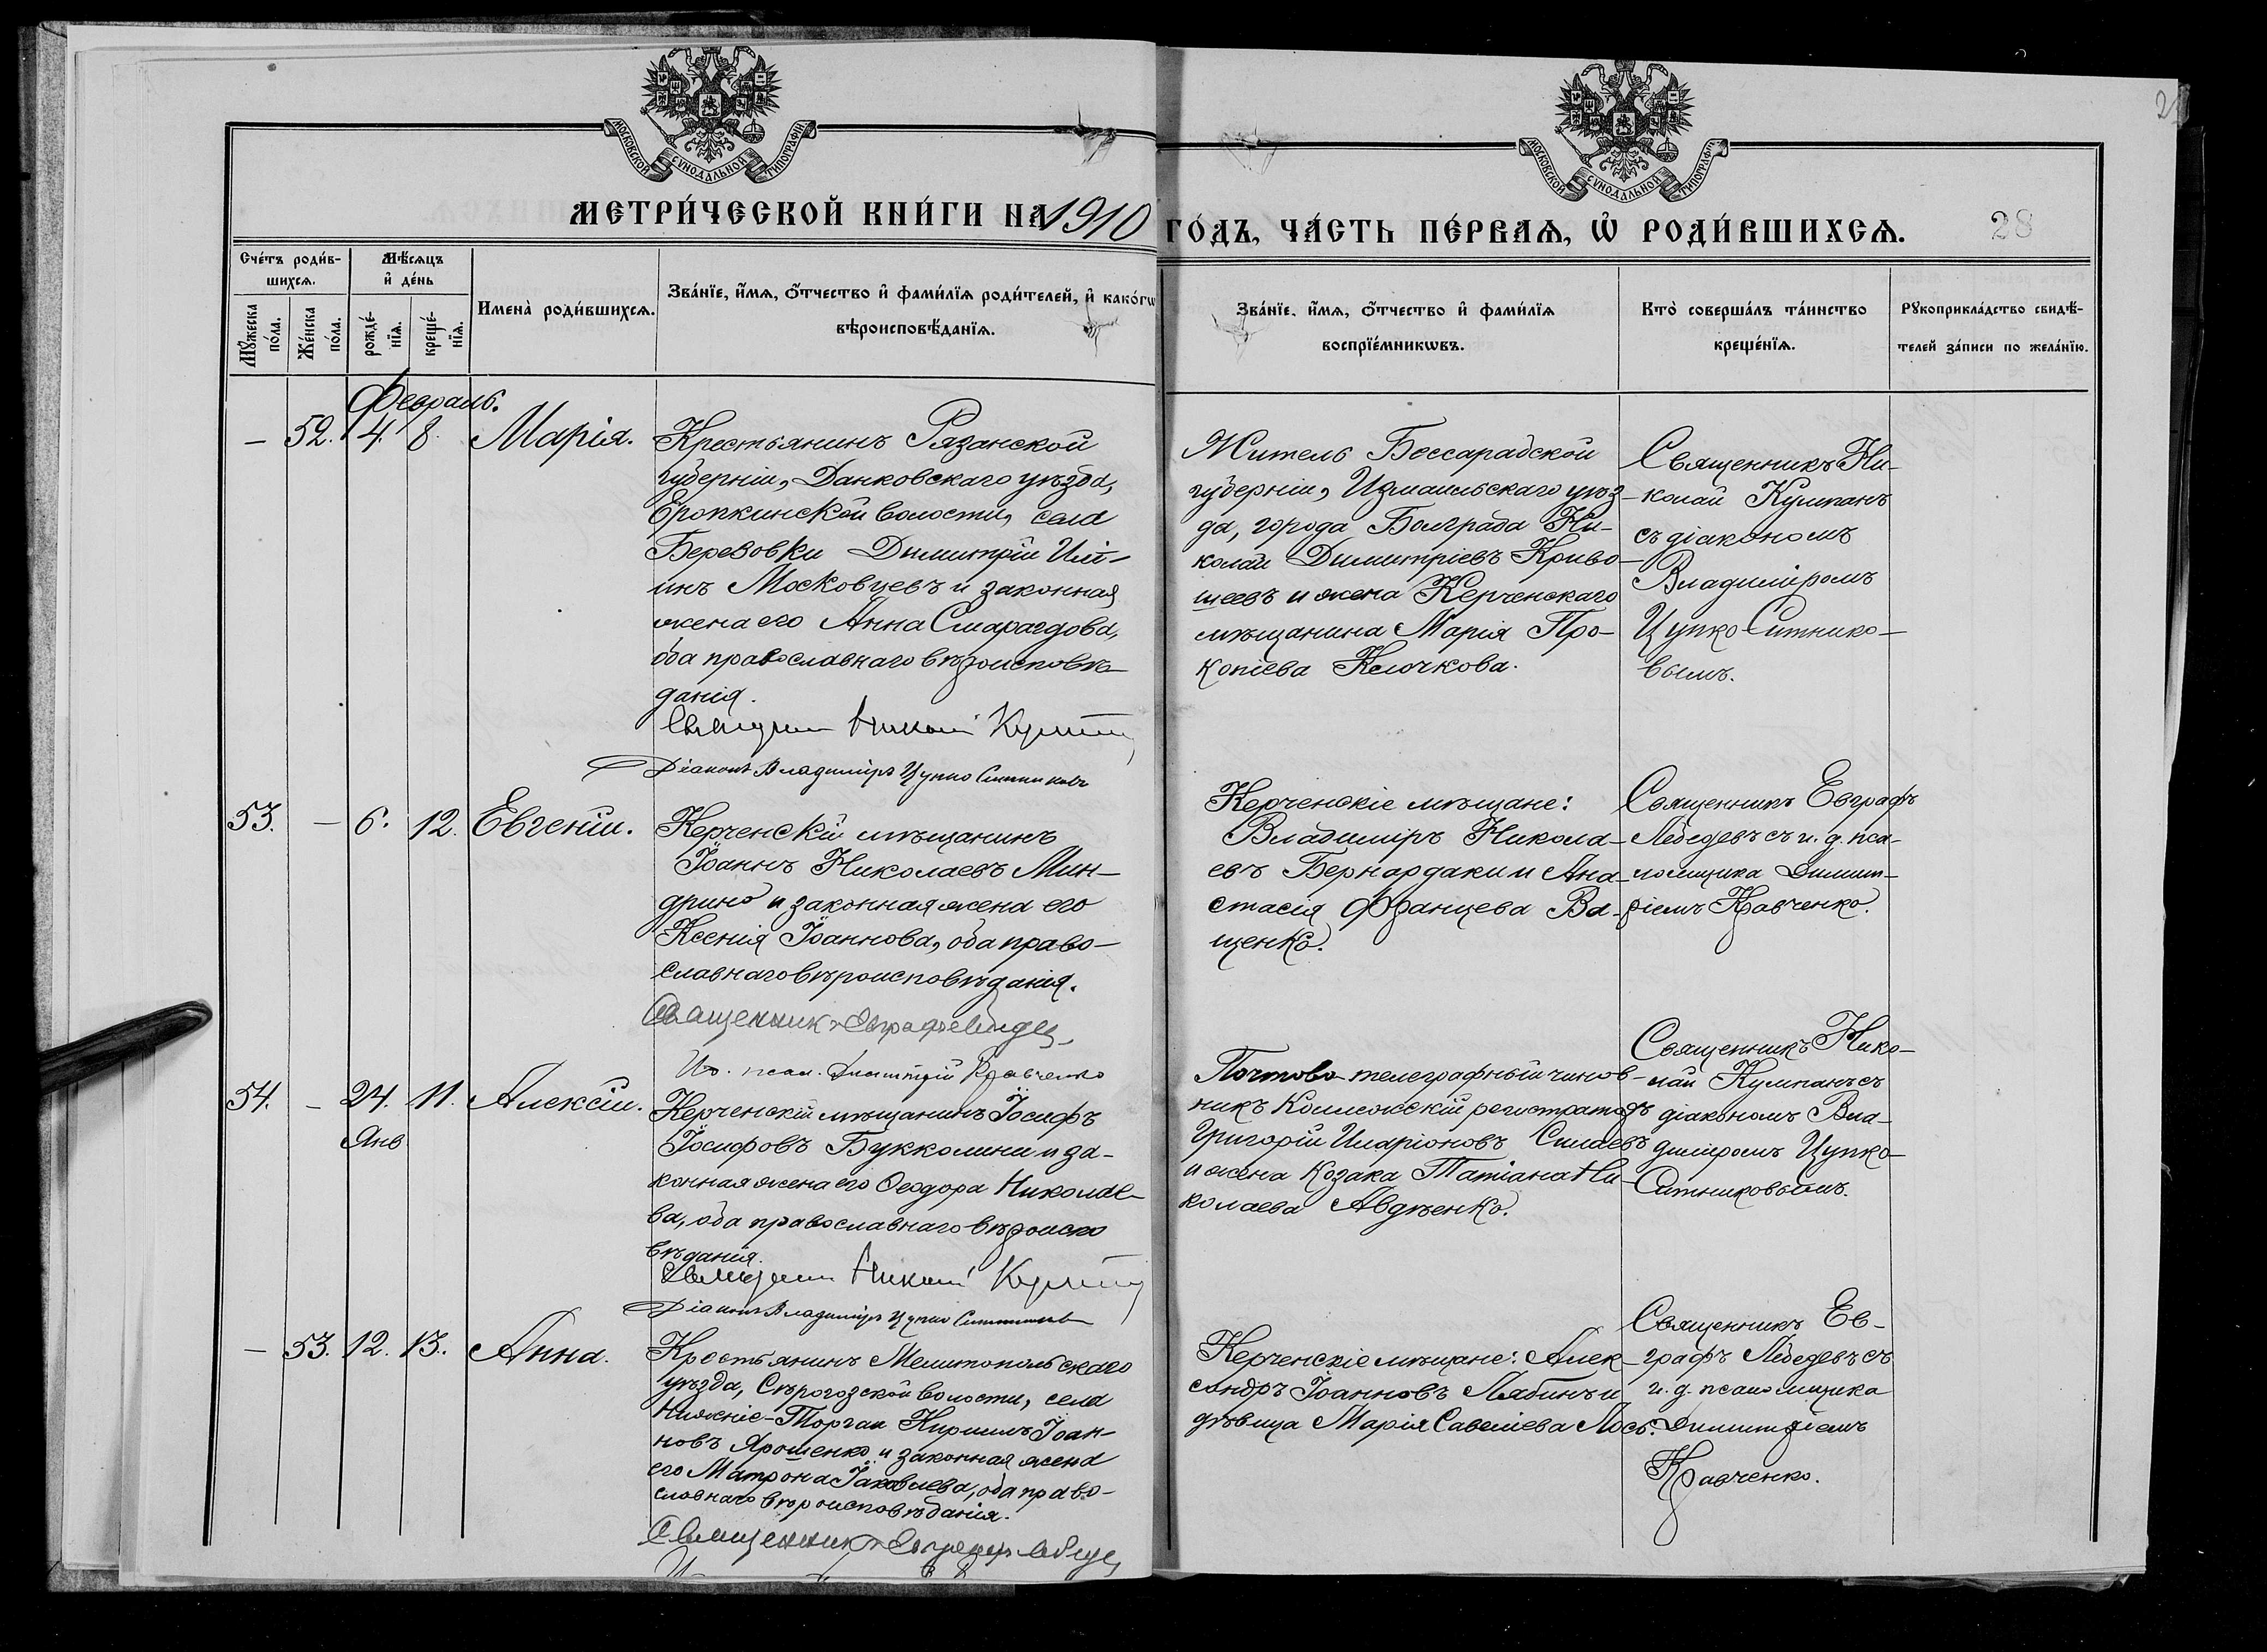 МОСКОВСКОЙ СѴНОДАЛЬНОЙ ТИПОГРАФІИ
МОСКОВСКОЙ СѴНОДАЛЬНОЙ ТИПОГРАФІИ
МЕТРИ́ЧЕСКОЙ КНИ́ГИ НА 1910 ГО́ДЪ, ЧА́СТЬ ПЕ́РВАѦ, Ѡ҆ РОДИ́ВШИХСѦ.
28
Сче́тъ роди́в-
шихсѧ.
Мѣ́сѧцъ
и҆ де́нь
Мꙋ́жеска
по́ла.
Же́нска
по́ла.
рожде́-
нїѧ.
креще́-
нїѧ.
Имена̀ роди́вшихсѧ.
Зва́нїе, и҆́мѧ, ѻ҆́тчество и҆ фами́лїѧ роди́телей, и҆ како́гѡ
вѣроисповѣ́данїѧ.
Зва́нїе, и҆́мѧ, ѻ҆́тчество и҆ фами́лїѧ
воспрїе́мникѡвъ.
Кто̀ соверша́лъ та́инство
креще́нїѧ.
Рꙋкоприкла́дство свидѣ́-
телей за́писи по жела́нїю.
Февраль.
— 52. 4. 8. Марія.
Крестьянинъ Рязанской
губерніи, Данковскаго уѣзда,
Еропкинской волости, села
Березовки Димитрій Иль-
инъ Московцевъ и законная
жена его Анна Смарагдова,
оба православнаго вѣроисповѣ-
данія.
Священникъ Николай Кумпанъ
Діаконъ Владиміръ Цупко Ситниковъ
Житель Бессарабской
губерніи, Измаильскаго уѣз-
да, города Болграда Ни-
колай Димитріевъ Криво-
шеевъ и жена Керченскаго
мѣщанина Марія Про-
копіева Клочкова.
Священникъ Ни-
колай Кумпанъ
съ діакономъ
Владиміромъ
Цупко-Ситнико-
вымъ.
53. — 6. 12. Евгеній.
Керченскій мѣщанинъ
Іоаннъ Николаевъ Мин-
дрино и законная жена его
Ксенія Іоаннова, оба право-
славнаго вѣроисповѣданія.
Священникъ Евграфъ Лебедевъ
Ио. псал. Димитрій Кравченко
Керченскіе мѣщане:
Владиміръ Никола-
евъ Бернардаки и Ана-
стасія Францева Ва-
щенко.
Священникъ Евграфъ
Лебедевъ съ и. д. пса-
ломщика Димит-
ріемъ Кравченко.
54. — 24. 11. Алексій.
Янв.
Керченскій мѣщанинъ Іосифъ
Іосифовъ Букколини и за-
конная жена его Ѳеодора Николае-
ва, оба православнаго вѣроиспо
вѣданія.
Священникъ Николай Кумпанъ
Діаконъ Владиміръ Цупко Ситниковъ
Почтово-телеграфный чинов-
никъ Коллежскій регистраторъ
Григорій Иларіоновъ Силаевъ
и жена козака Татіана Ни-
колаева Авдѣенко.
Священникъ Нико-
лай Кумпанъ съ
діакономъ Вла-
диміромъ Цупко-
Ситниковымъ.
— 53. 12. 13. Анна.
Крестьянинъ Мелитопольскаго
уѣзда, Сѣрогозской волости, села
Нижніе-Торгаи Кириллъ Іоан-
новъ Ярошенко и законная жена
его Матрона Іаковлева, оба право-
славнаго вѣроисповѣданія.
Священникъ Евграфъ Лебедевъ
Керченскіе мѣщане: Алек-
сандръ Іоанновъ Лябинъ и
дѣвица Марія Савеліева Лось.
Священникъ Ев-
графъ Лебедевъ съ
и. д. псаломщика
Димитріемъ
Кравченко.